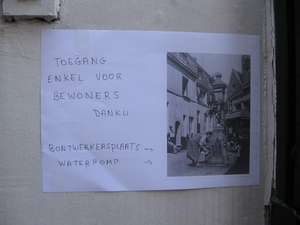 TOEGANG
ENKEL VOOR
BEWONERS
DANKU
BONTWERKERSPLAATS →
WATERPOMP →